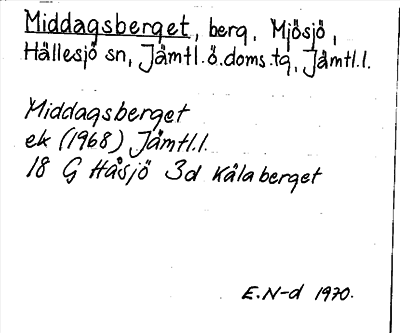 Middagsberget, berg, Mjösjö,
Hällesjö sn, Jämtl.ö.doms.tg, Jämtl.l.
Middagsberget
ek (1968) Jämtl.l.
18 G Håsjö 3d Kälaberget
E.N-d 1970.